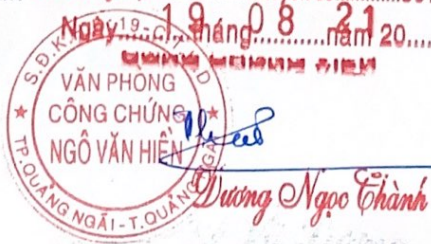 Ngày 19 tháng 08 năm 20 21
VĂN PHÒNG
CÔNG CHỨNG
NGÔ VĂN HIỀN
TP.QUẢNG NGÃI - T.QUẢNG NGÃI
Dương Ngọc Thành